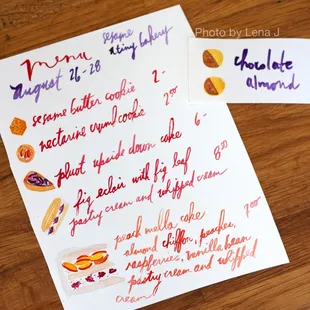 Photo by Lena J
menu
sesame
a tiny bakery
august 26-28
sesame butter cookie 2-
nectarine crumb cookie 2.00
pluot upside down cake 6-
fig eclair with fig leaf 8.00
pastry cream and whipped cream
peach melba cake 7.00
almond chiffon, peaches,
raspberries, vanilla bean
pastry cream and whipped
cream
chocolate
almond